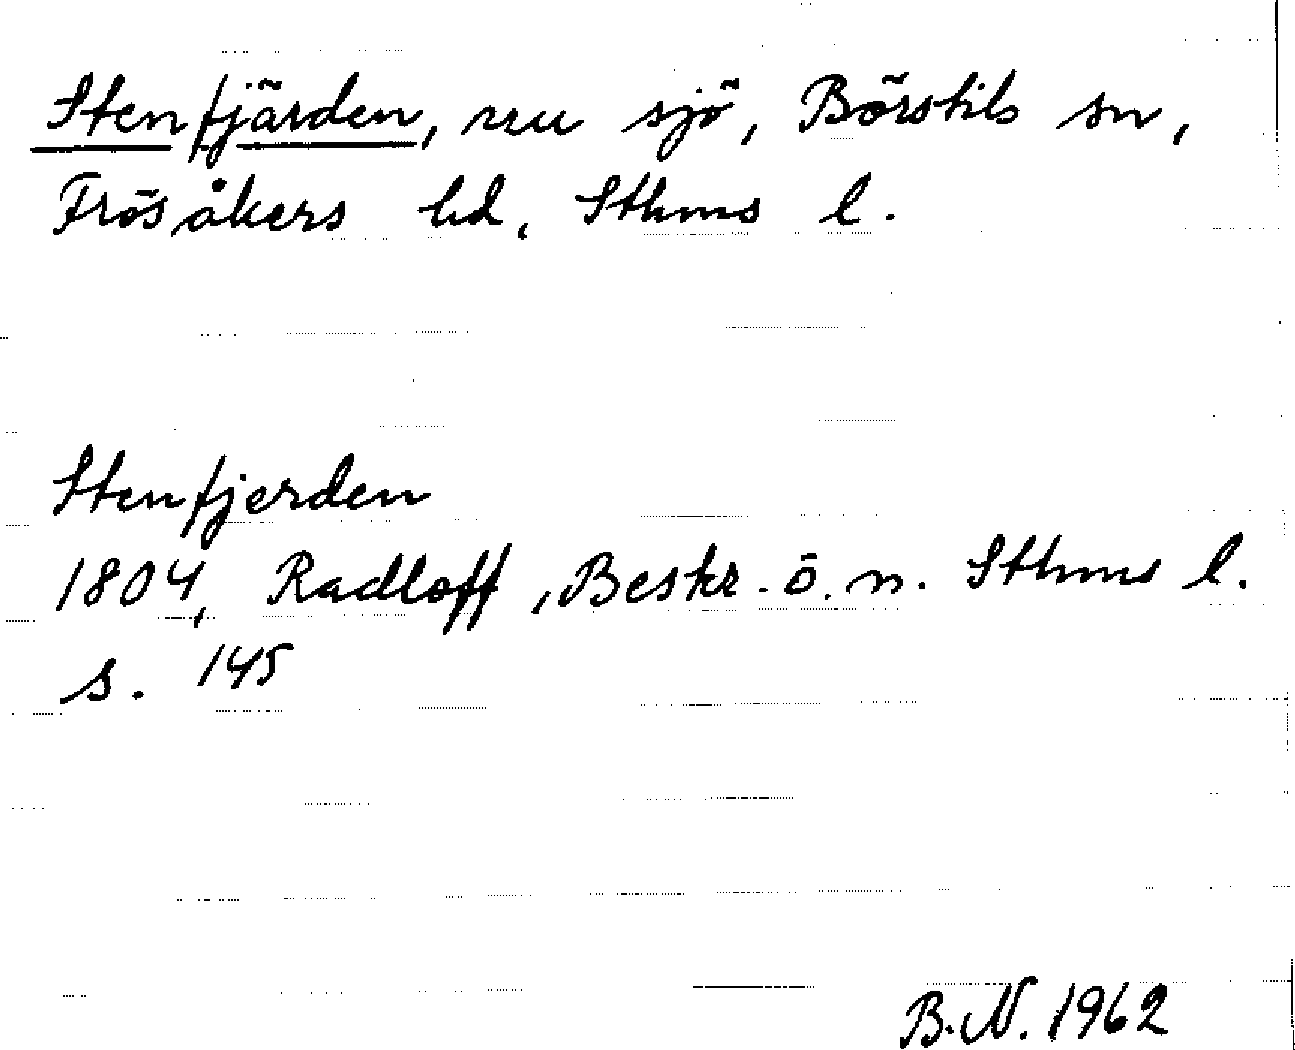 Stenfjärden, nu sjö, Börstils sn,
Frösåkers hd, Sthms l.
Stenfjerden
1804, Radloff, Beskr. ö. n. Sthms l.
s. 145
B.N. 1962